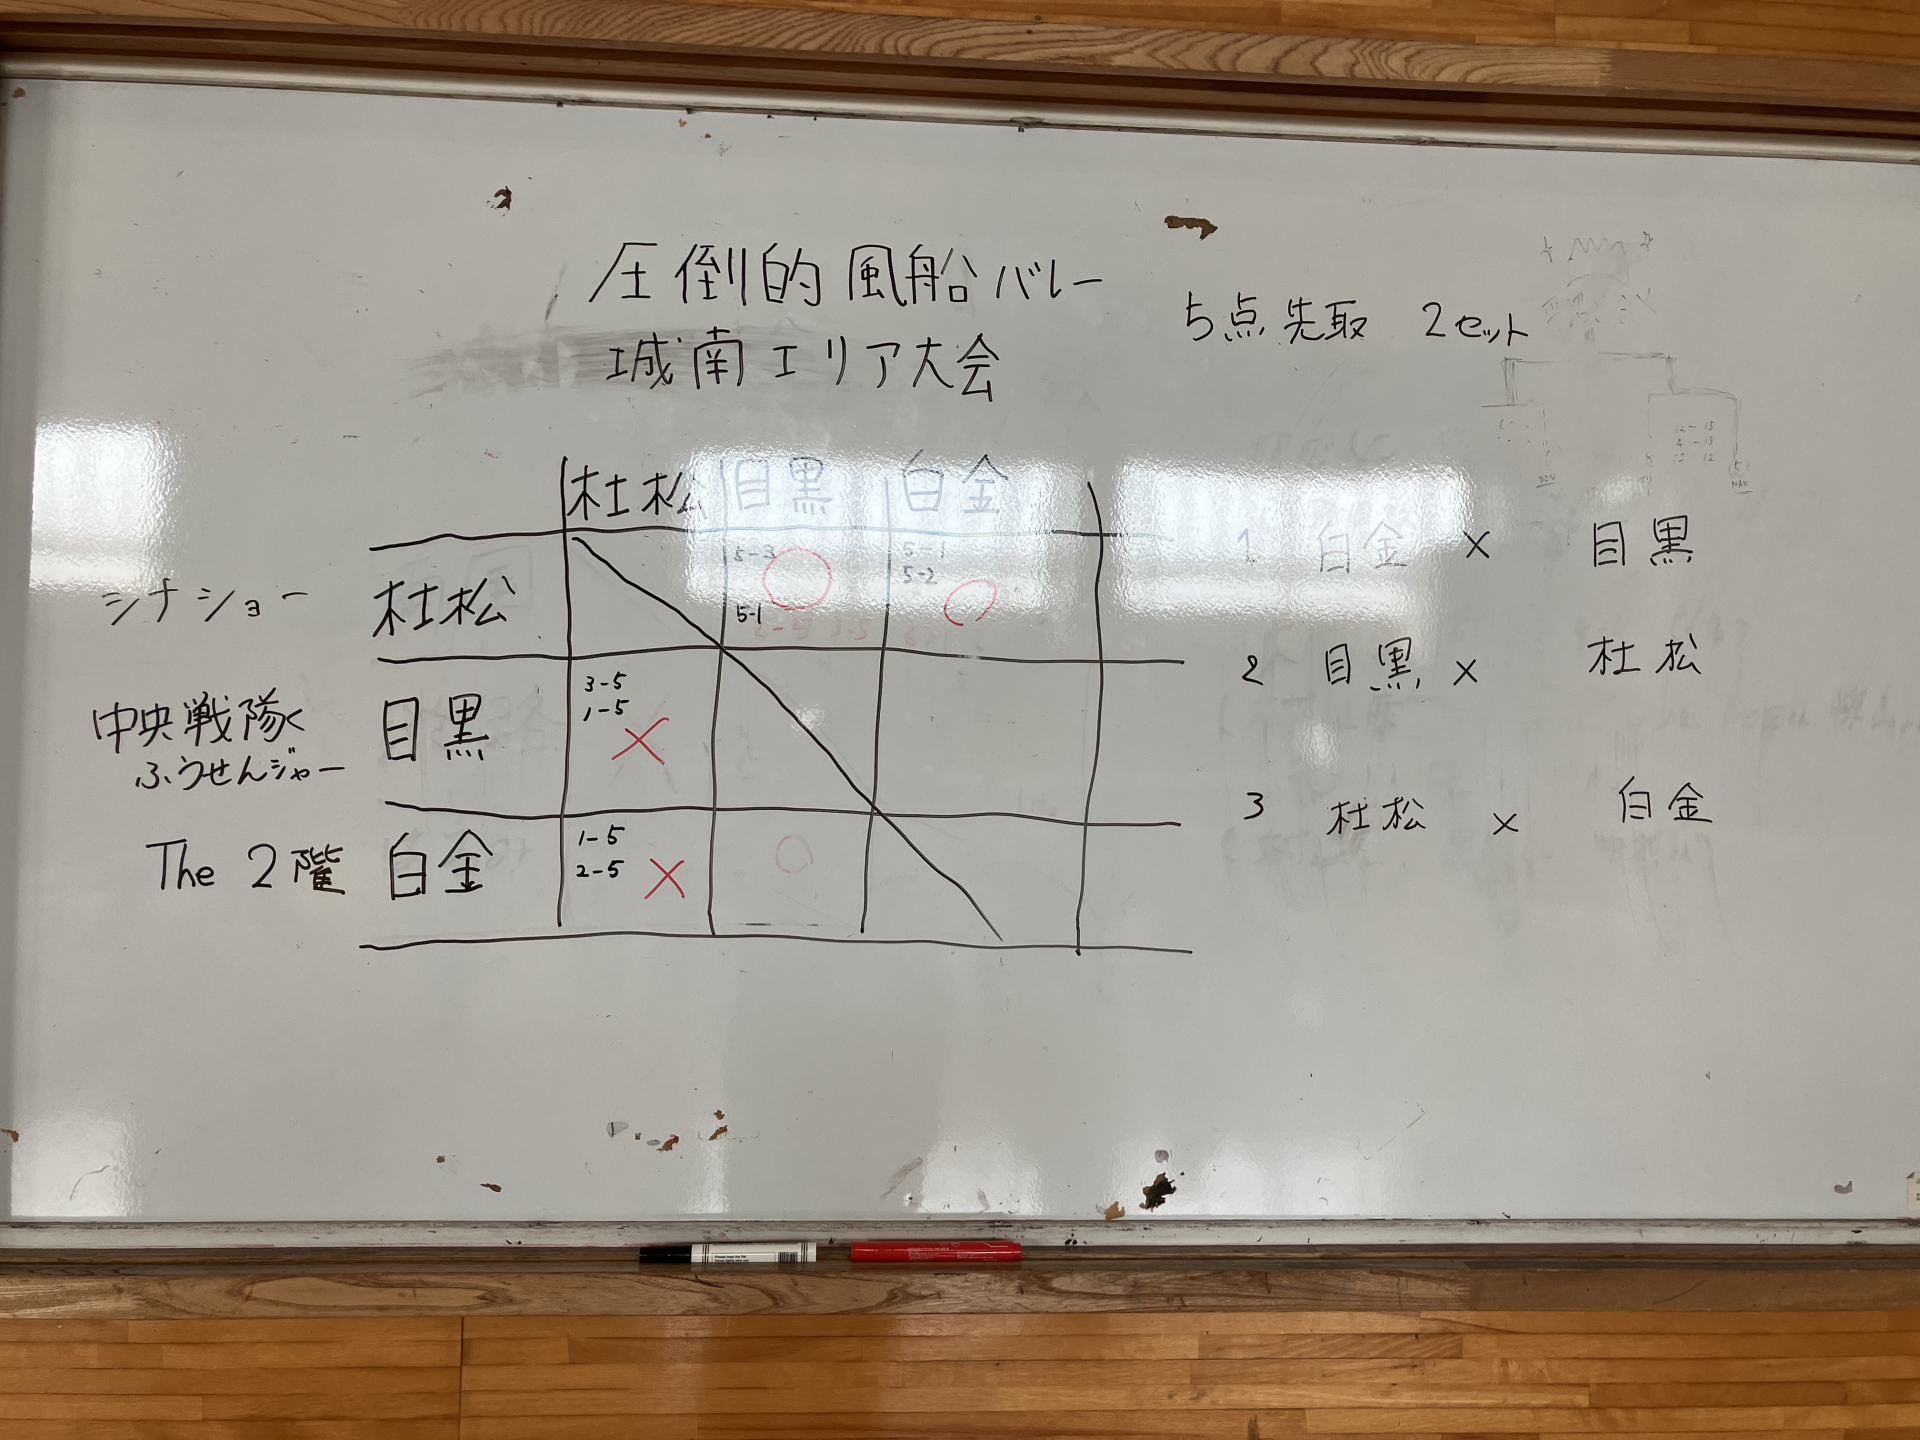 圧倒的風船バレー
城南エリア大会
5点先取 2セット
杜松 目黒 白金
シナショー 杜松 5-3 5-1
5-1 5-2
中央戦隊 目黒 3-5
ふうせんジャー 1-5 ×
The 2階 白金 1-5
2-5 ×
1 白金 × 目黒
2 目黒 × 杜松
3 杜松 × 白金